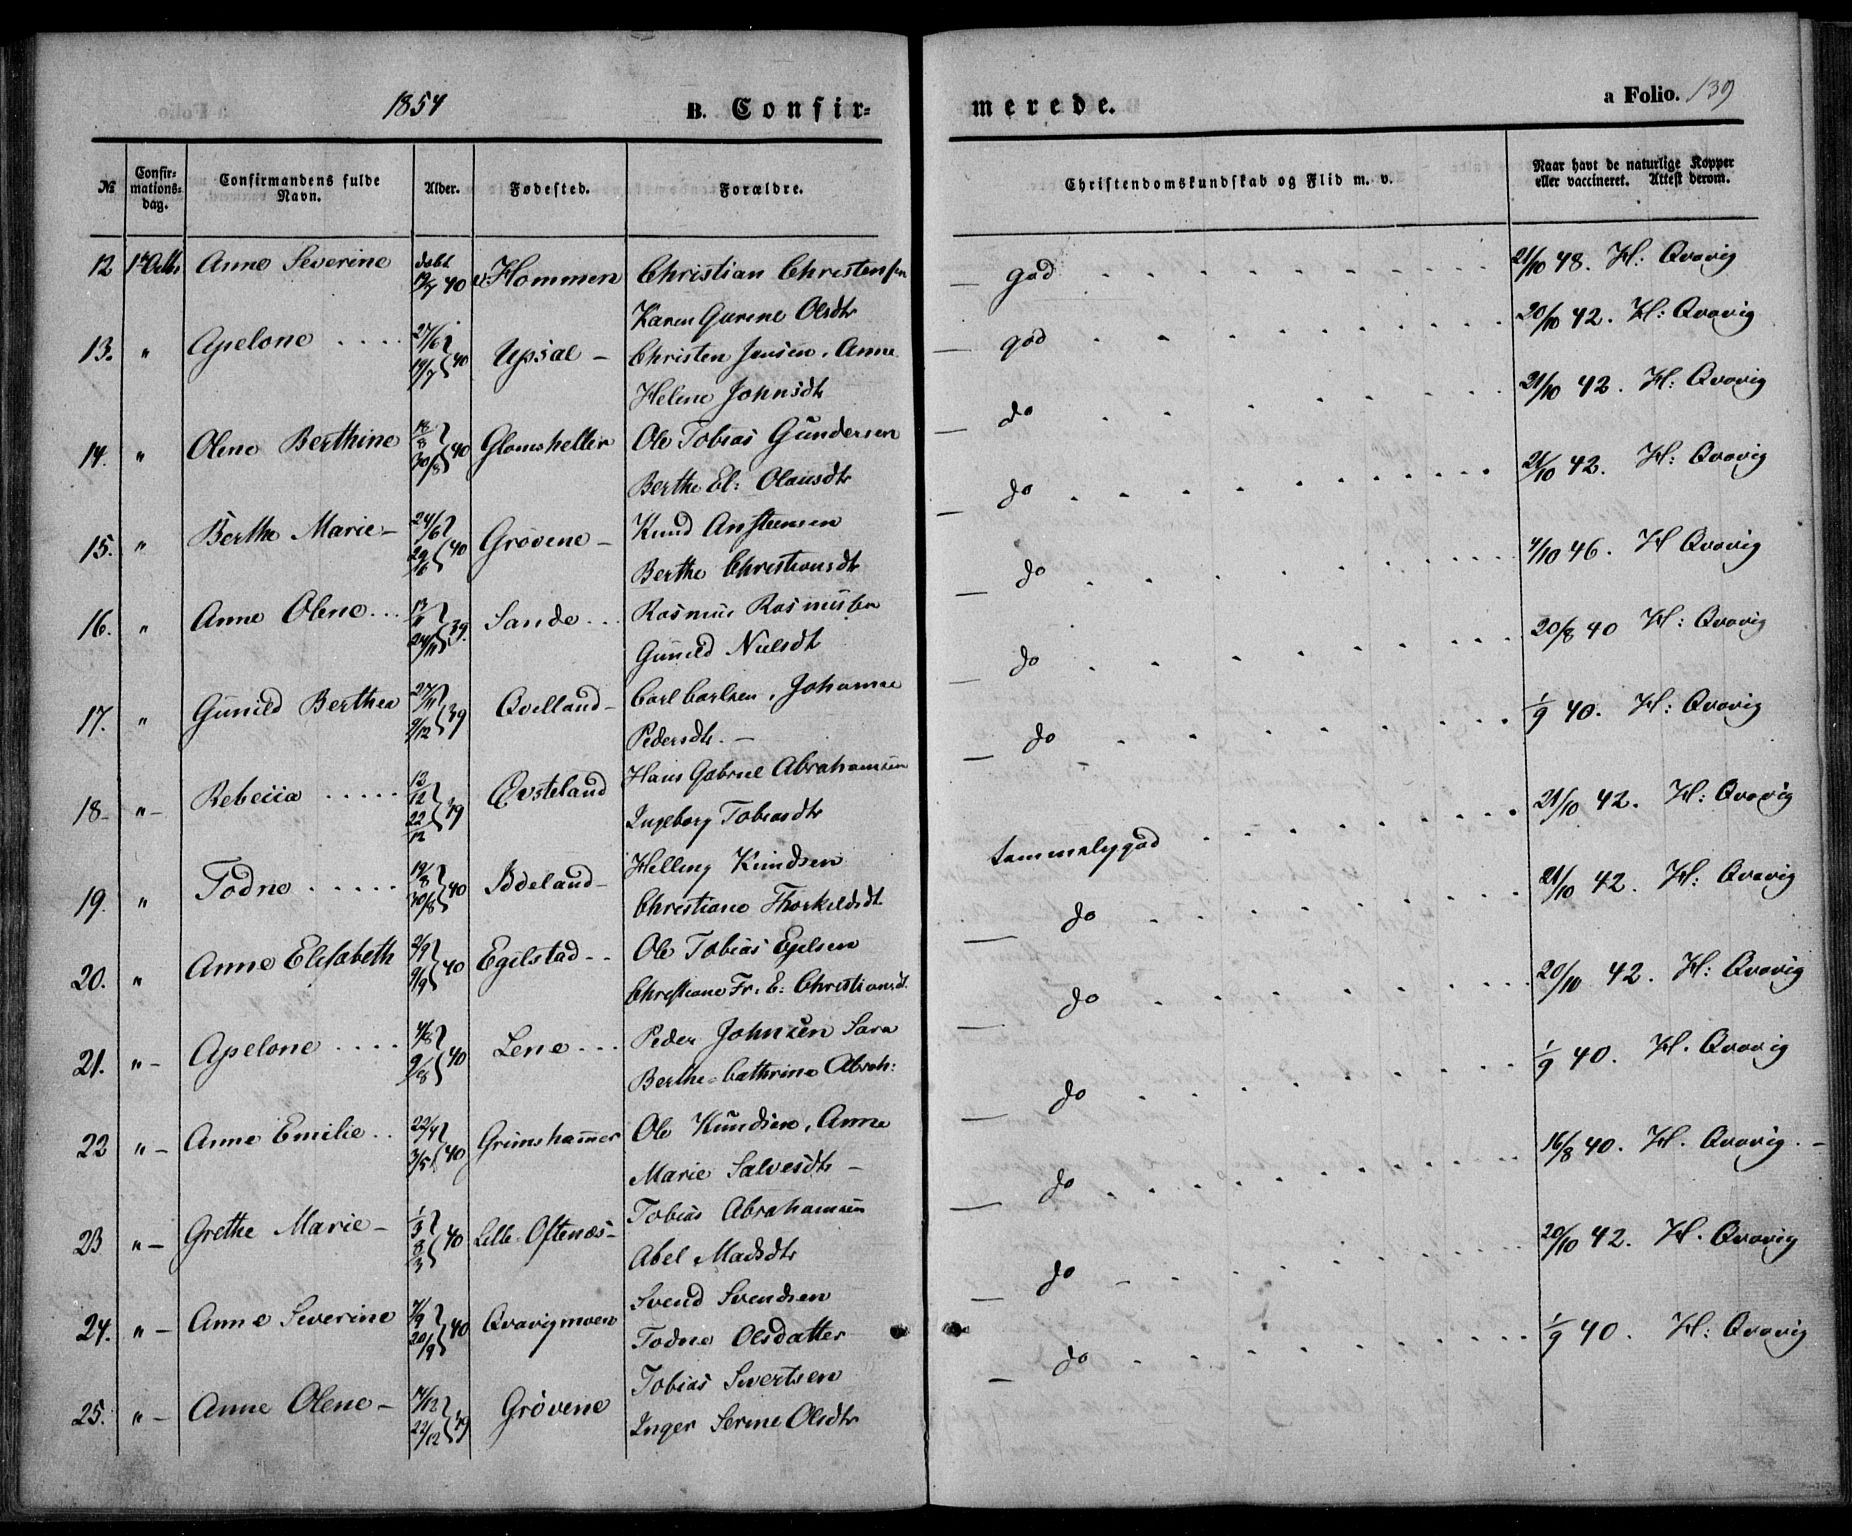 1854
B. Confir-
merede.
a Folio. 139
№
Confir-
mations-
dag.
Confirmandens fulde
Navn.
Alder.
Fødested.
Forældre.
Christendomskundskab og Flid m. v.
Naar havt de naturlige Kopper
eller vaccineret. Attest derom.
12 Anne Severine døbt 40 Hommen Christian Christensen
Karen Gurine Olsdtr
god 21/10 48. H: Qvavig
13. " Apelone 27/6 19/7 40 Upsal - Christen Jensen, Anne
Helene Johnsdtr
god 20/10 42. H: Qvavig
14. " Olene Berthine 18/8 30/8 40 Glomsheller Ole Tobias Gundersen
Berthe El: Olausdtr
do 21/10 42. H: Qvavig
15. " Berthe Marie - 24/6 29/6 40 Grøvene - Knud Anstensen
Berthe Christiansdtr
do 21/10 42. H: Qvavig
16. " Anne Olene 13/11 24/11 39. Sande Rasmus Rasmussen
Gunild Nielsdtr
do 4/10 46. H Qvavig
17. " Gunild Berthea 27/11 9/12 39 Qvelland - Carl Carlsen, Johanne
Pedersdtr. -
do 20/8 40 H: Qvavig
18 - " - Rebecca 13/12 22/12 39 Qvsteland Hans Gabriel Abrahamsen
Ingeborg Tobiasdtr
do 1/9 40. H: Qvavig
19. " Todne 19/8 30/8 40 Iddeland - Helling Knudsen
Christiane Thorkeldsdt
temmelig god 21/10 42. H: Qvavig
20. " Anne Elisabeth 2/9 9/9 40 Egilstad - - Ole Tobias Egelsen
Christiane Fr: E: Christiansdt.
do 21/10 42. H: Qvavig
21. " - Apelone 4/8 9/8 40 Lene Peder Johnsen Sara
Berthe Cathrine Abrah:
do 20/10 42. H: Qvavig
22 " - Anne Emilie 22/4 3/5 40 Grimshammer Ole Knudsen, Anne
Marie Salvesdtr -
do 1/9 40. H. Qvavig
23 " - Grethe Marie - 1/3 8/3 40 Lille Oftenæs - Tobias Abrahamsen
Abel Madsdtr
do 16/8 40. H. Qvavig. -
24. " - Anne Severine 7/9 20/9 40 Qvavigmoen Svend Svendsen
Todne Olsdatter
do 20/10 42. H. Qvavig
25. " - Anne Olene - 22/12 39 Grøvene Tobias Sivertsen
Inger Serine Olsdtr
do 1/9 40. H: Qvavig